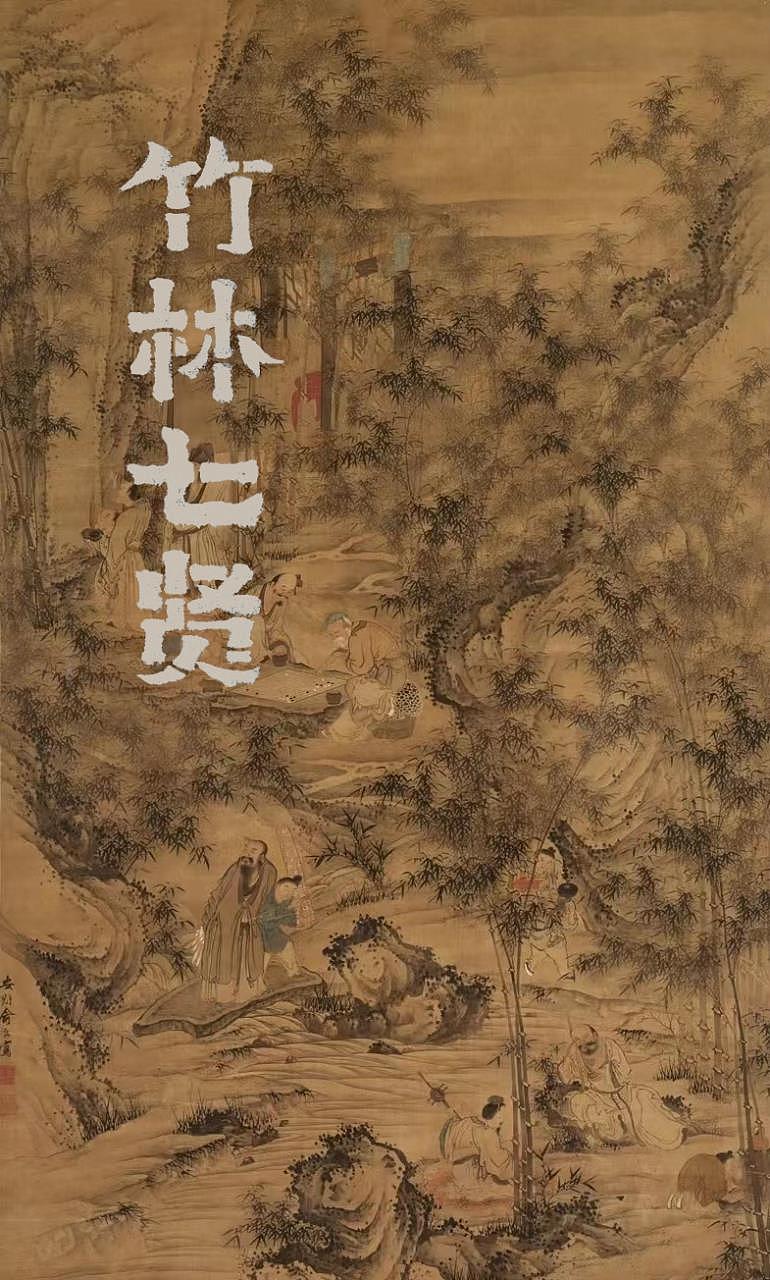 竹林七贤